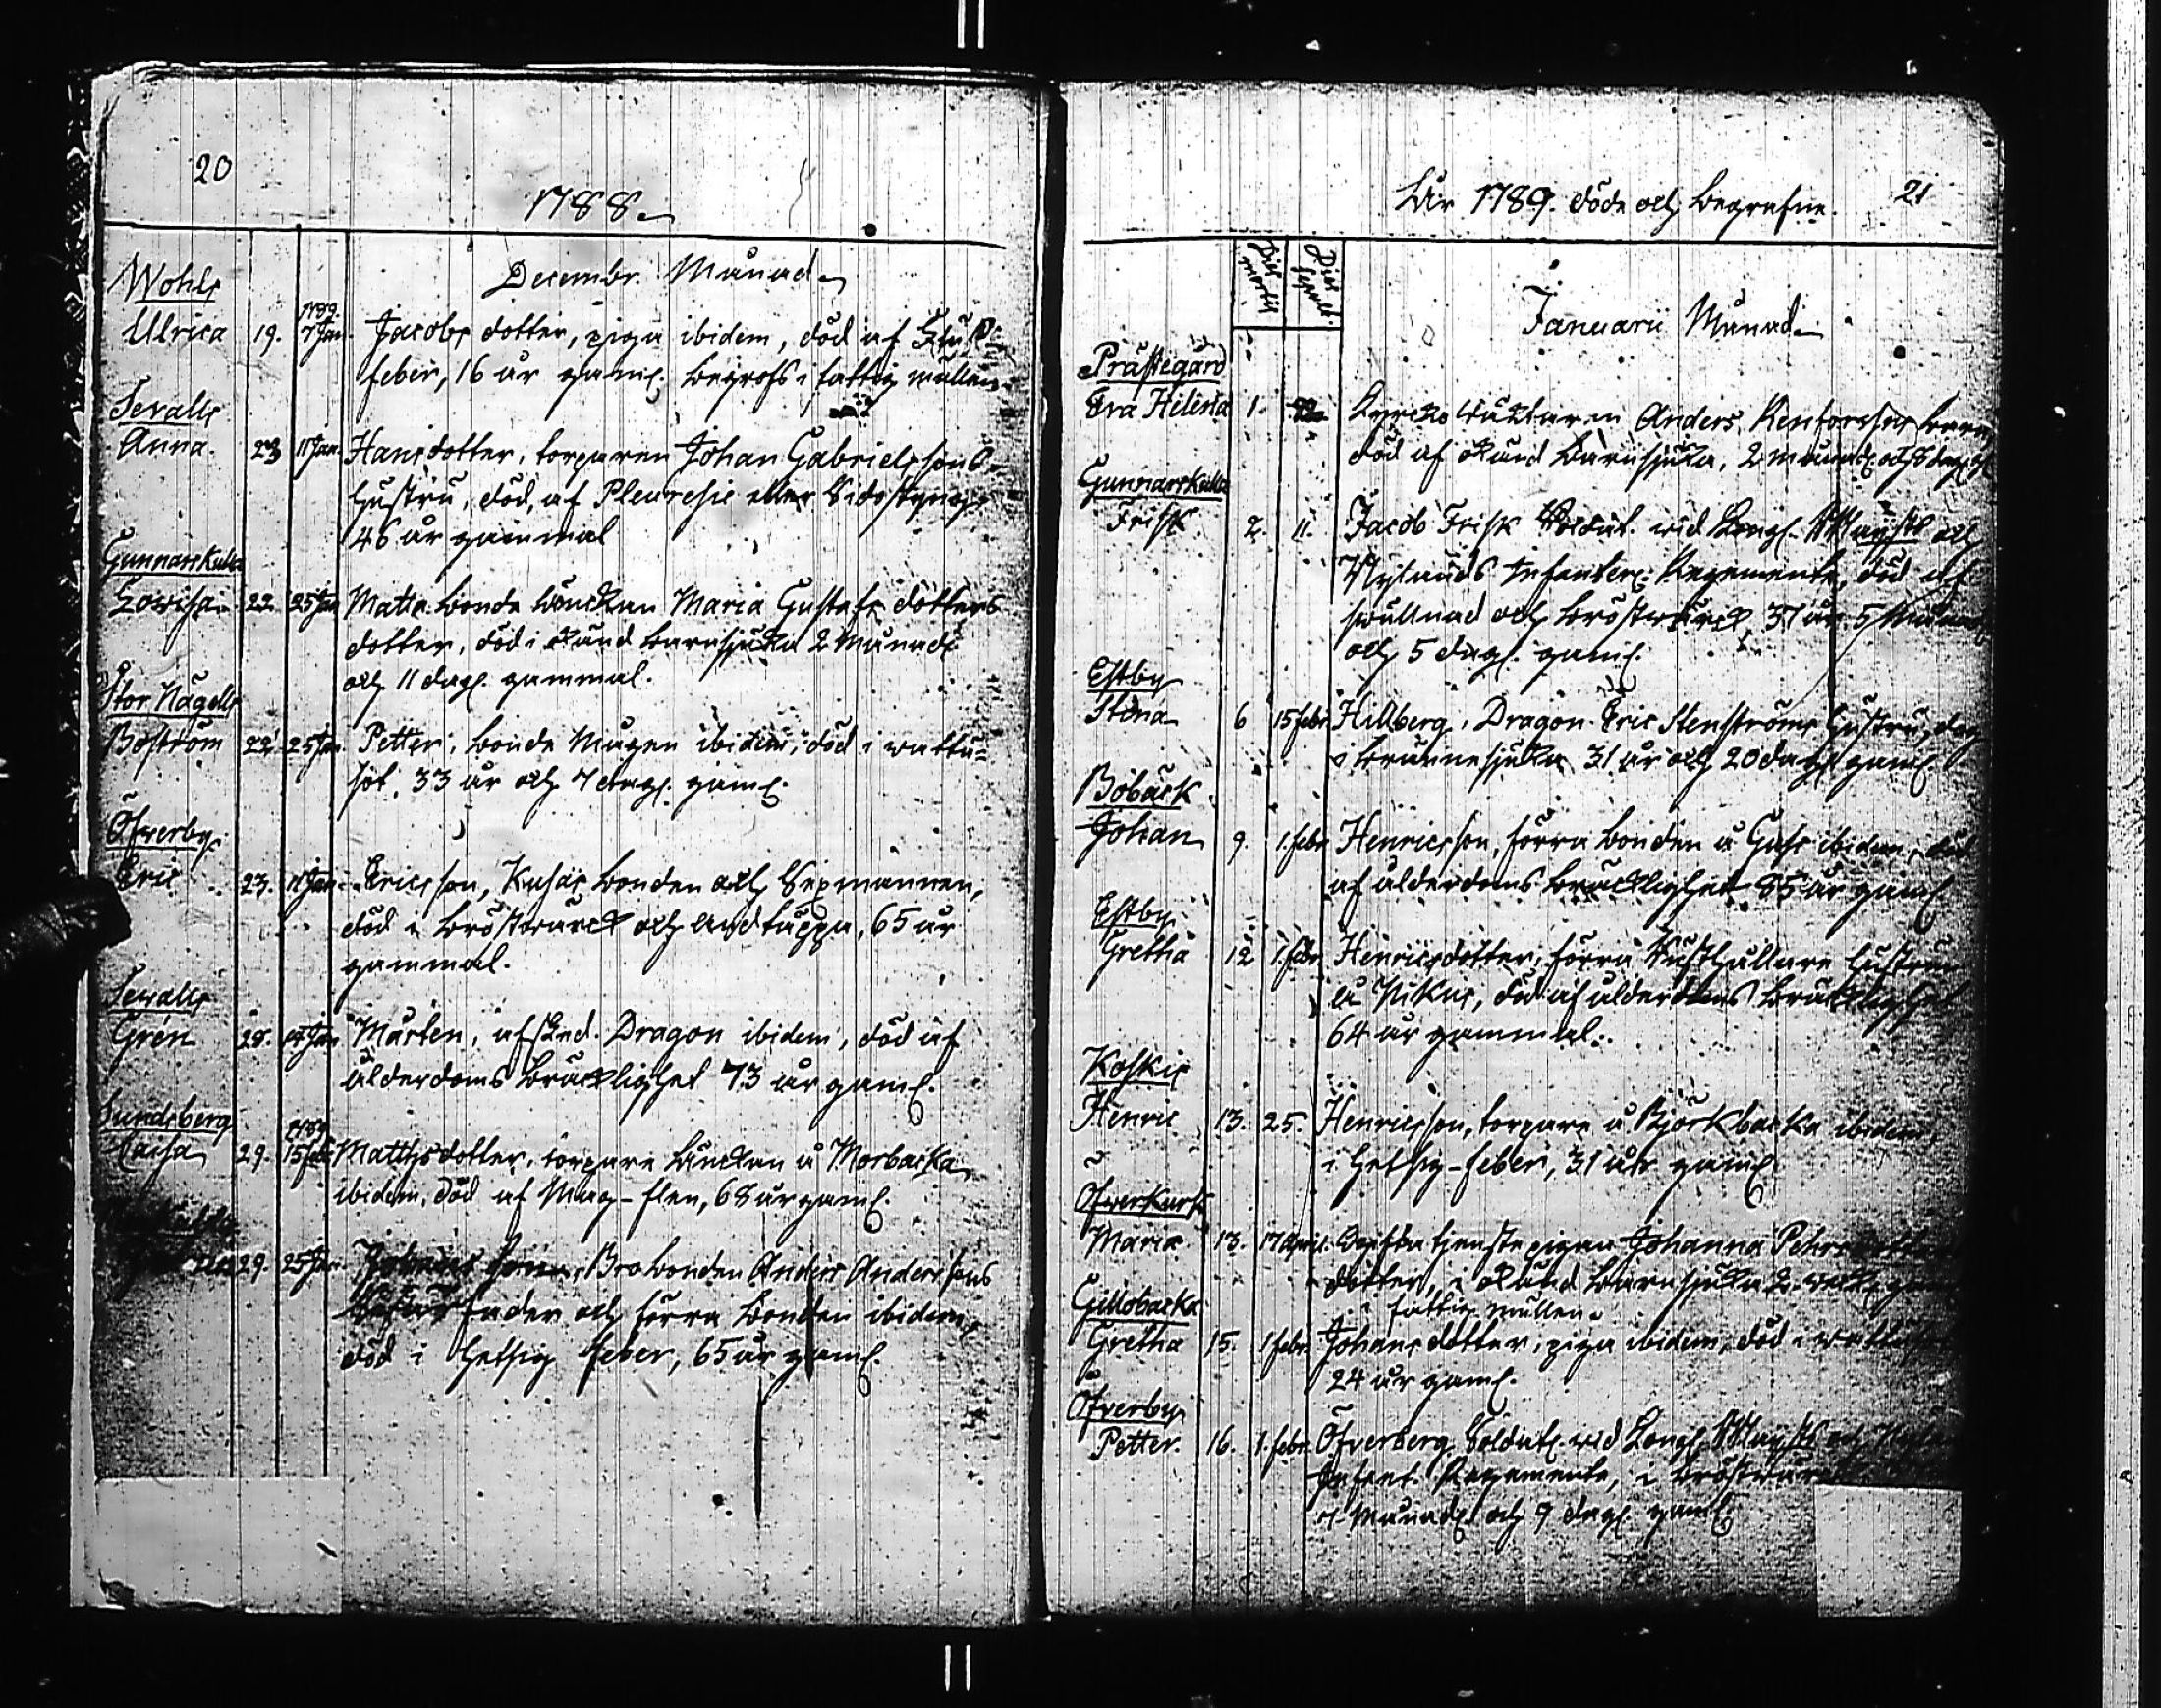 20
1788.
Decembr. Månad
Wohls
1789.
Ulrica 19. 7 Jan. Jacobs dotter, piga ibidem, död af
feber, 16 år gaml. begrofs i fattig mullen
Sevalls
Anna. 23 11 Jan. Hansdotter, torparen Johan Gabrielssons
hustru, död, af Pleuresie eller Sidostyng,
46 år gammal
Gunnarskulla
Lovisa 22. 25 Jan Matts bonde änckan Maria Gustafs dotters
dotter, död i okänd barnsjuka 2 Månad.
och 11 dag. gammal.
Stor Nägells
Boström 22. 25 Jan. Petter, bonde Mågen ibidem, död i wattu-
sot, 33 år och 7 dag. gaml.
Öfverby
Eric 23. 11 Jan. Ericsson, Kusas bonden och Sexmannen,
död i bröstwärck och andtäppa, 65 år
gammal.
Sevalls
Gren 28. Jan Mårten, afsked. Dragon ibidem, död af
ålderdoms bräcklighet 73 år gaml.
Sundsberg
1789
Caisa 29. 15 feb. Mattsdotter, torpare änckan å Morbacka
ibidem, död af Mag-flen, 68 år gaml.
29. 25 Jan. Bro bonden Anders Anderssons
fader och förra bonden ibidem,
död i hetsig feber, 65 år gaml.
År 1789. döde och begrafne. 21
Dies mortis Dies sepult.
Januarii Månad
Prästegård
Eva Helena 1. Kyrcko wäktaren Anders Renforssons barn
död af okänd barnsjuka, 2 månad. och
Gunnarskulla
Frisk 2. 11. Jacob Frisk Soldat wid Kongl. Maijsts och
Nylands Infanterie Regemente, död af
swullnad och bröstwärck 37 år 5 Månad
och 5 dag. gaml.
Estby
Stina 6 15 febr Hillberg, Dragon Eric Stenströms hustru,
i brännesjuka 31 år och 20 dag. gaml.
Böbäck
Johan 9. 1. febr Henricsson, förra bonden å Gäss ibidem, död
af ålderdoms bräcklighet 85 år gaml.
Estby
Gretha 12 1. febr. Henricsdotter, förra Rusthållare hustrun
å Nikus, död af ålderdoms bräcklighet
64 år gammal.
Koskis
Henric 13. 25. Henricsson, torpare å Björkbacka ibidem,
i hetsig-feber, 31 år gaml.
Öfverkurk
Maria 13. 17 April. tjenste pigan Johanna Pehrs
dotter, i okänd barnsjuka 2.
i fattig mullen.
Gillobacka
Gretha 15. 1 febr. Johans dotter, piga ibidem, död i
24 år gaml.
Öfverby
Petter. 16. 1. febr. Öfverberg Soldat. wid Kongl. Maijsts och
Infant. Regemente, i bröstwärck
7 Månad. och 9 dag. gaml.